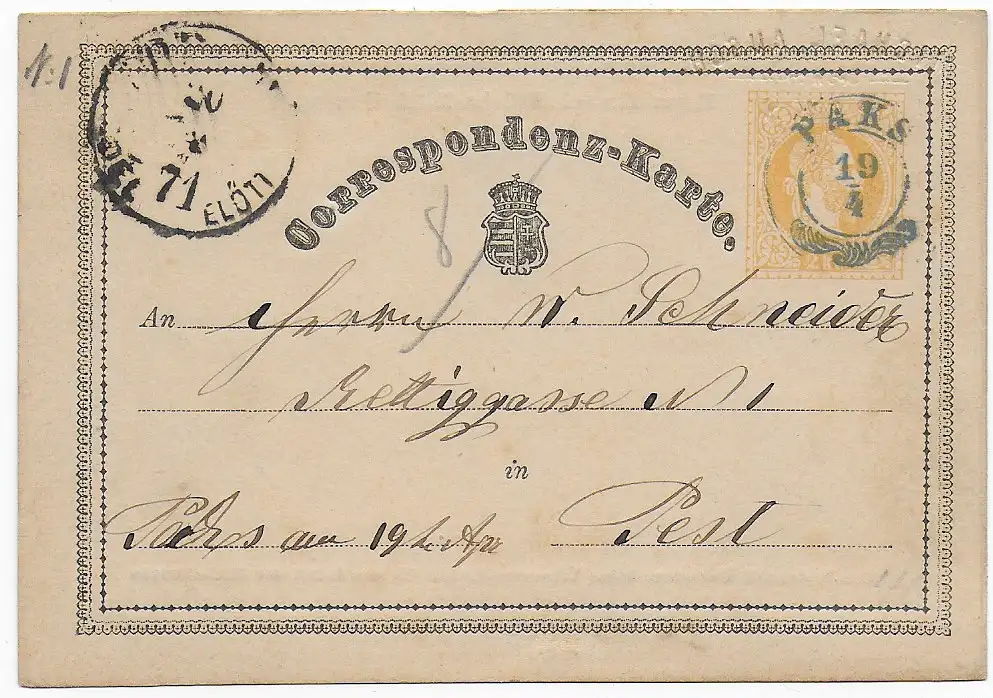 N. 1
71
ELŐTT
Correspondenz-Karte.
PAKS
19
4
8
An Herrn W. Schneider
Rettiggasse N 1
in
Pest
am 19